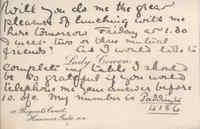 Will you do me the great
pleasure of lunching with me
here tomorrow Friday at 1.30
& meet two or three mutual
friends? As I would like to
complete my table I should
be so grateful if you would
telephone me your answer before
10. of do My number is Padding
4186
Lady
Hanover Gate